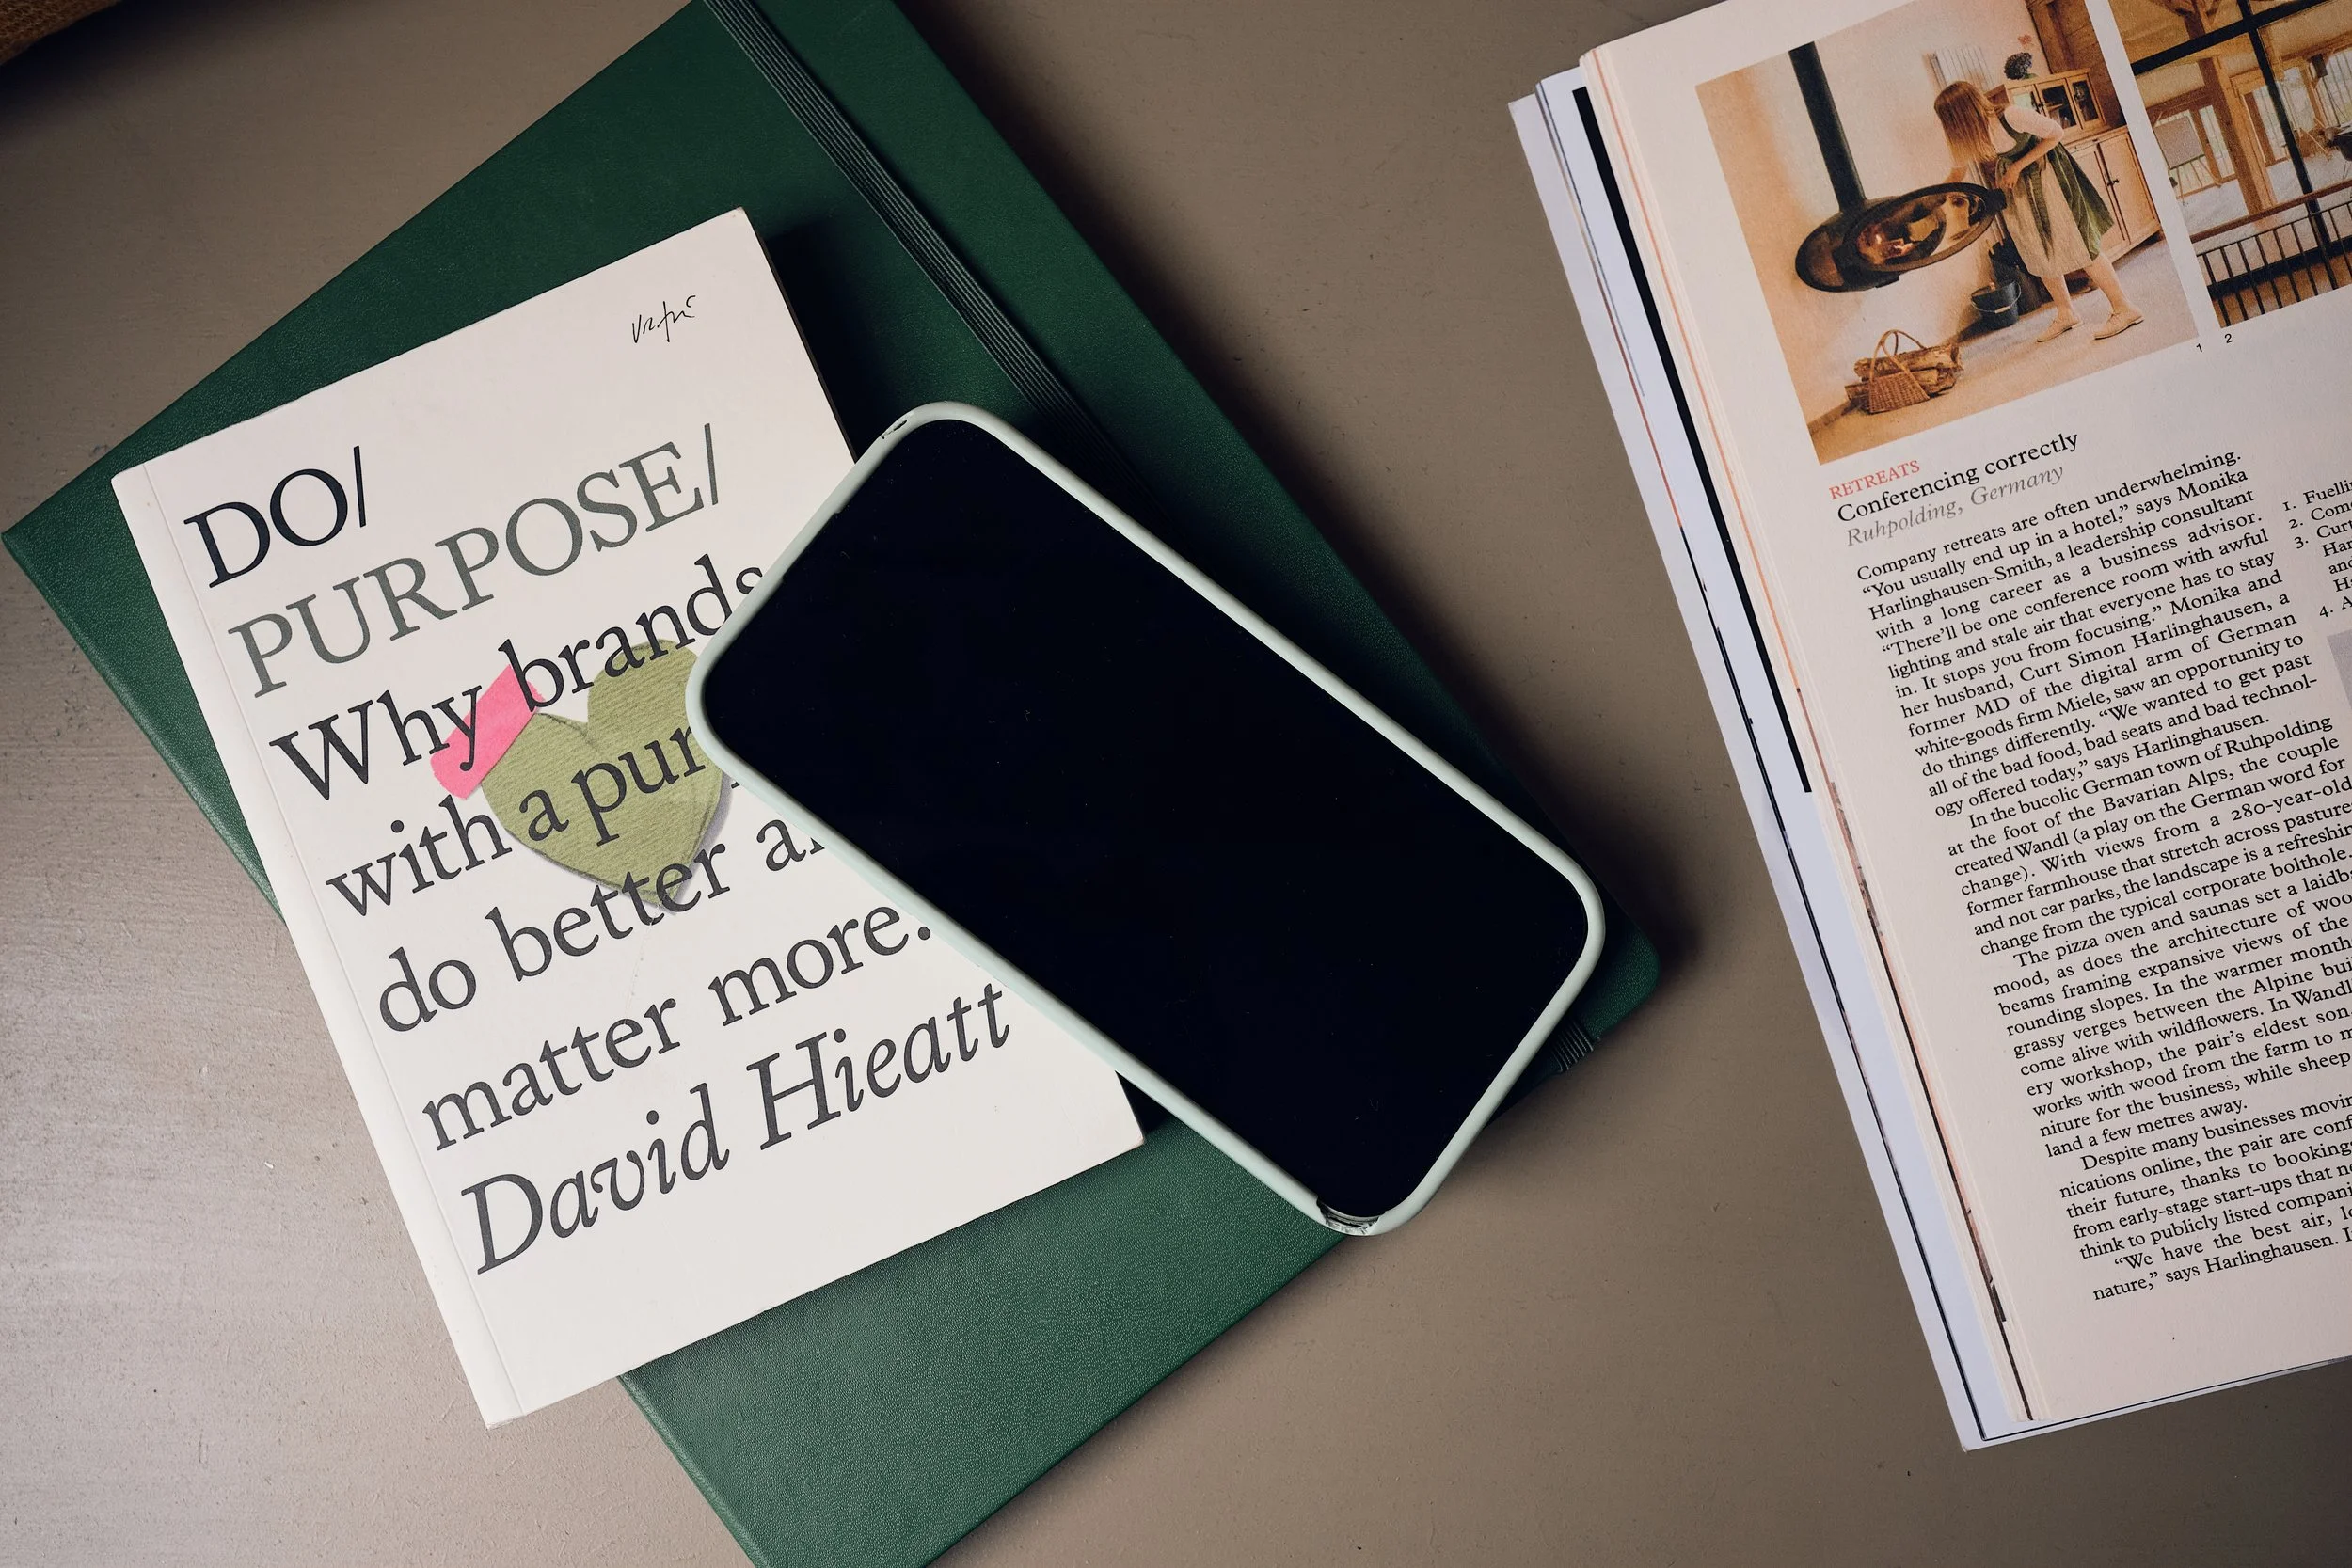 DO/
PURPOSE/
Why brands
with a pur
do better a
matter more.
David Hieatt
1 2
RETREATS
Conferencing correctly
Ruhpolding, Germany
Company retreats are often underwhelming.
“You usually end up in a hotel,” says Monika
Harlinghausen-Smith, a leadership consultant
with a long career as a business advisor.
“There’ll be one conference room with awful
lighting and stale air that everyone has to stay
in. It stops you from focusing.” Monika and
her husband, Curt Simon Harlinghausen, a
former MD of the digital arm of German
white-goods firm Miele, saw an opportunity to
do things differently. “We wanted to get past
all of the bad food, bad seats and bad technol-
ogy offered today,” says Harlinghausen.
In the bucolic German town of Ruhpolding
at the foot of the Bavarian Alps, the couple
created Wandl (a play on the German word for
change). With views from a 280-year-old
former farmhouse that stretch across pasture
and not car parks, the landscape is a refreshin
change from the typical corporate bolthole.
The pizza oven and saunas set a laidb
mood, as does the architecture of woo
beams framing expansive views of the
rounding slopes. In the warmer month
grassy verges between the Alpine bui
come alive with wildflowers. In Wandl
ery workshop, the pair’s eldest son
works with wood from the farm to m
niture for the business, while sheep
land a few metres away.
Despite many businesses movin
nications online, the pair are conf
their future, thanks to booking
from early-stage start-ups that n
think to publicly listed compani
“We have the best air, l
nature,” says Harlinghausen. I
1. Fuelli
2. Com
3. Curt
Har
and
H
4. A